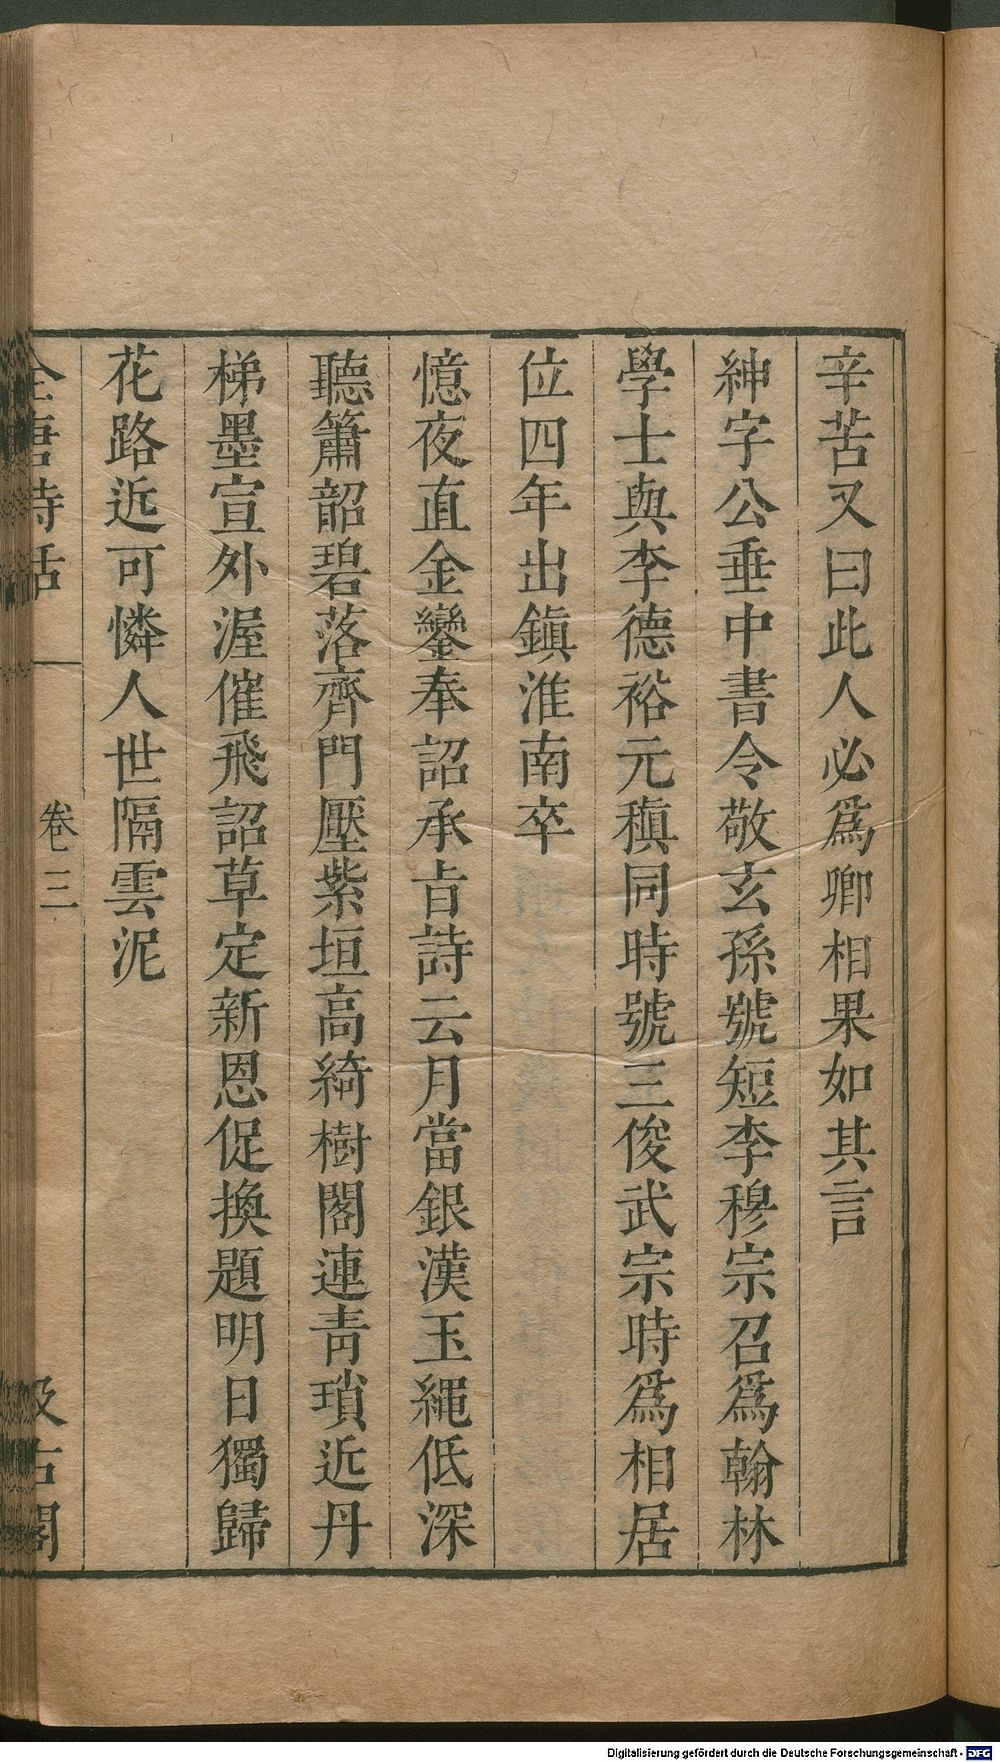 辛苦又曰此人必爲卿相果如其言
紳字公垂中書令敬玄孫號短李穆宗召爲翰林
學士與李德裕元稹同時號三俊武宗時爲相居
位四年出鎭淮南卒
憶夜直金鑾奉詔承㫖詩云月當銀漢玉繩低深
聽簫韶碧落齊門壓紫垣高綺樹閣連靑瑣近丹
梯墨宣外渥催飛詔草定新恩促換題明日獨歸
花路近可憐人世隔雲泥
全唐詩話
卷三
汲古閣
Digitalisierung gefördert durch die Deutsche Forschungsgemeinschaft - DFG